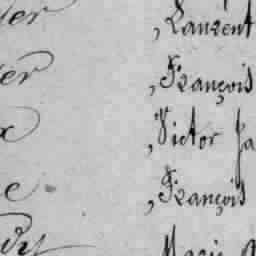 er , Laurent
er , François
x , Victor Ja
e , François
Marie